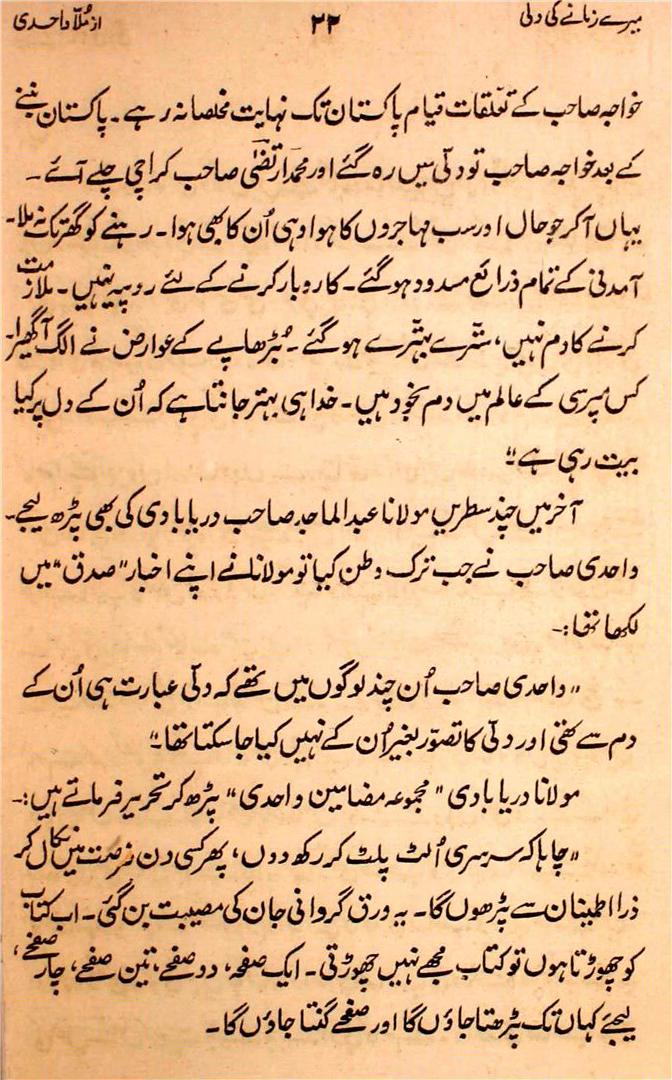 میرے زمانے کی دلی ۲۲ از مُلّا واحدی
خواجہ صاحب کے تعلّقات قیام پاکستان تک نہایت مخلصانہ رہے۔ پاکستان بننے
کے بعد خواجہ صاحب تو دلّی میں رہ گئے اور محمد ارتضیٰ صاحب کراچی چلے آئے۔
یہاں آکر جو حال اور سب مہاجروں کا ہوا وہی اُن کا بھی ہوا۔ رہنے کو گھر تک نہ ملا۔
آمدنی کے تمام ذرائع مسدود ہوگئے۔ کاروبار کرنے کے لئے روپیہ نہیں۔ ملازمت
کرنے کا دم نہیں، ستّرے بہتّرے ہو گئے۔ بُڑھاپے کے عوارض نے الگ آگھیرا۔
کس مپرسی کے عالم میں دم بخود ہیں۔ خدا ہی بہتر جانتا ہے کہ اُن کے دل پر کیا
بیت رہی ہے"
آخر میں چند سطریں مولانا عبد الماجد صاحب دریابادی کی بھی پڑھ لیجے۔
واحدی صاحب نے جب ترک وطن کیا تو مولانا نے اپنے اخبار "صدق" میں
لکھا تھا:۔
"واحدی صاحب اُن چند لوگوں میں تھے کہ دلّی عبارت ہی اُن کے
دم سے تھی اور دلّی کا تصوّر بغیر اُن کے نہیں کیا جا سکتا تھا۔"
مولانا دریابادی "مجموعہ مضامین واحدی" پڑھ کر تحریر فرماتے ہیں:۔
"چاہا کہ سرسری اُلٹ پلٹ کر رکھ دوں، پھر کسی دن فرصت میں نکال کر
ذرا اطمینان سے پڑھوں گا۔ یہ ورق گروانی جان کی مصیبت بن گئی۔ اب کتاب
کو چھوڑتا ہوں تو کتاب مجھے نہیں چھوڑتی۔ ایک صفحہ، دو صفحے، تین صفحے، چار صفحے،
لیجئے کہاں تک پڑھتا جاؤں گا اور صفحے گنتا جاؤں گا۔